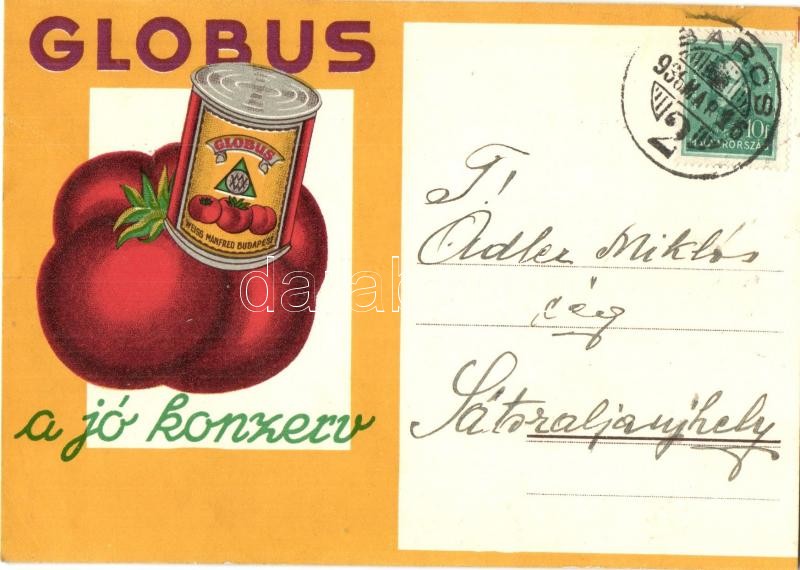 GLOBUS
GLOBUS
WEISS MANFRED BUDAPEST
a jó konzerv
BARCS
2
10f
MAGYARORSZÁG
T!
Adler Miklós
cég
Sátoraljaujhely
darab